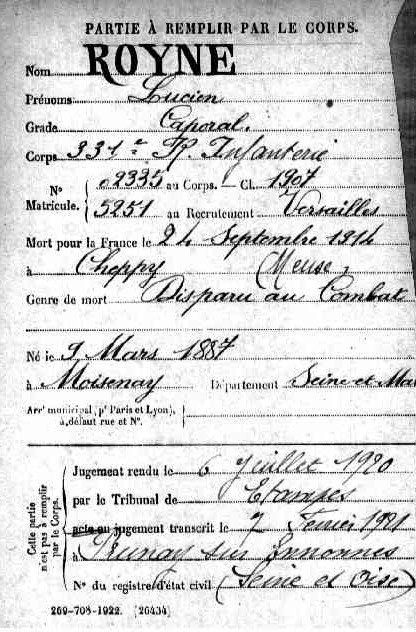 PARTIE À REMPLIR PAR LE CORPS.
Nom ROYNE
Prénoms Lucien
Grade Caporal.
Corps 331e R. Infanterie
N° Matricule. { 02335 au Corps. — Cl. 1907
5251 au Recrutement Versailles
Mort pour la France le 24 Septembre 1914
à Cheppy (Meuse)
Genre de mort Disparu au Combat
Né le 9 Mars 1887
à Moisenay Département Seine et Mar
Arrt municipal (pr Paris et Lyon), à défaut rue et N°.
Cette partie n'est pas à remplir par le Corps.
Jugement rendu le 6 Juillet 1920
par le Tribunal de Etampes
acte au jugement transcrit le 7 Février 1921
à Prunay sur Essonnes
N° du registre d'état civil (Seine et Oise)
269-708-1922. [26434]